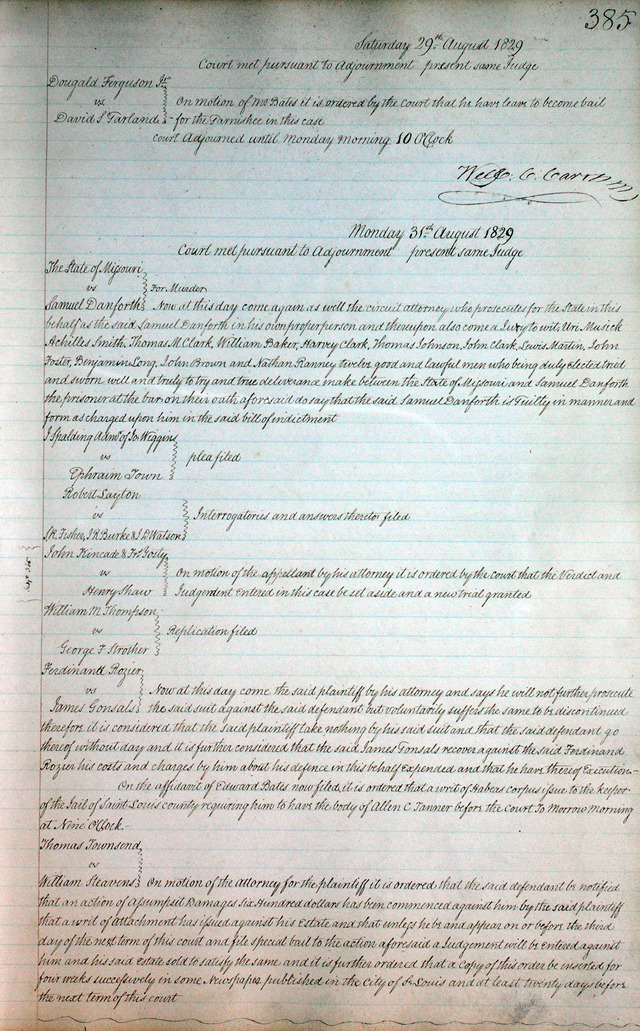 385
Saturday 29th August 1829
Court met pursuant to Adjournment present same Judge
Dougald Ferguson Jr
vs
David S Tarland
On motion of Mr Bates it is ordered by the court that he have leave to become bail
for the Garnishee in this case
Court Adjourned until Monday Morning 10 OClock
Will. C. Carr
Monday 31st August 1829
Court met pursuant to Adjournment present same Judge
The State of Missouri
vs
For Murder
Samuel Danforth Now at this day come again as well the circuit attorney who prosecutes for the State in this
behalf as the said Samuel Danforth in his own proper person and thereupon also come a Jury to wit, Uri Musick
Achilles Smith, Thomas M Clark, William Baker, Harvey Clark, Thomas Johnson, John Clark, Lewis Martin, John
Foster, Benjamin Long, John Brown and Nathan Ranney twelve good and lawful men who being duly elected tried
and sworn well and truly to try and true deliverance make between the State of Missouri and Samuel Danforth
the prisoner at the bar on their oath aforesaid do say that the said Samuel Danforth is Guilty in manner and
form as charged upon him in the said bill of indictment
J Spalding Admr of Jo Wiggins
vs
plea filed
Ephraim Town
Robert Layton
vs
Interrogatories and answers thereto filed
J R Burke & J D Watson
John Kincade &
vs
Henry Shaw
On motion of the appellant by his attorney it is ordered by the court that the Verdict and
Judgement Entered in this case be set aside and a new trial granted
William M Thompson
vs
Replication filed
George F Strother
Ferdinand Rozier
vs
James Gonsals
Now at this day come the said plaintiff by his attorney and says he will not further prosecute
the said suit against the said defendant but voluntarily suffers the same to be discontinued
therefore it is considered that the said plaintiff take nothing by his said suit and that the said defendant go
thereof without day and it is further considered that the said James Gonsals recover against the said Ferdinand
Rozier his costs and charges by him about his defence in this behalf Expended and that he have thereof Execution
On the affidavit of Edward Bates now filed, it is ordered that a writ of Habeas corpus issue to the keeper
of the Jail of Saint Louis county requiring him to have the body of Allen C Tanner before the Court To Morrow Morning
at Nine OClock.
Thomas Townsend
vs
William Steavens On motion of the Attorney for the plaintiff it is ordered that the said defendant be notified
that an action of assumpsit Damages six Hundred dollars has been commenced against him by the said plaintiff
that a writ of Attachment has issued against his Estate and that unless he and appear on or before the third
day of the next term of this court and file special bail to the action aforesaid a Judgement will be Entered against
him and his said Estate sold to satisfy the same and it is further ordered that a Copy of this order be inserted for
four weeks successively in some Newspaper published in the City of St Louis and at least twenty days before
the next term of this court